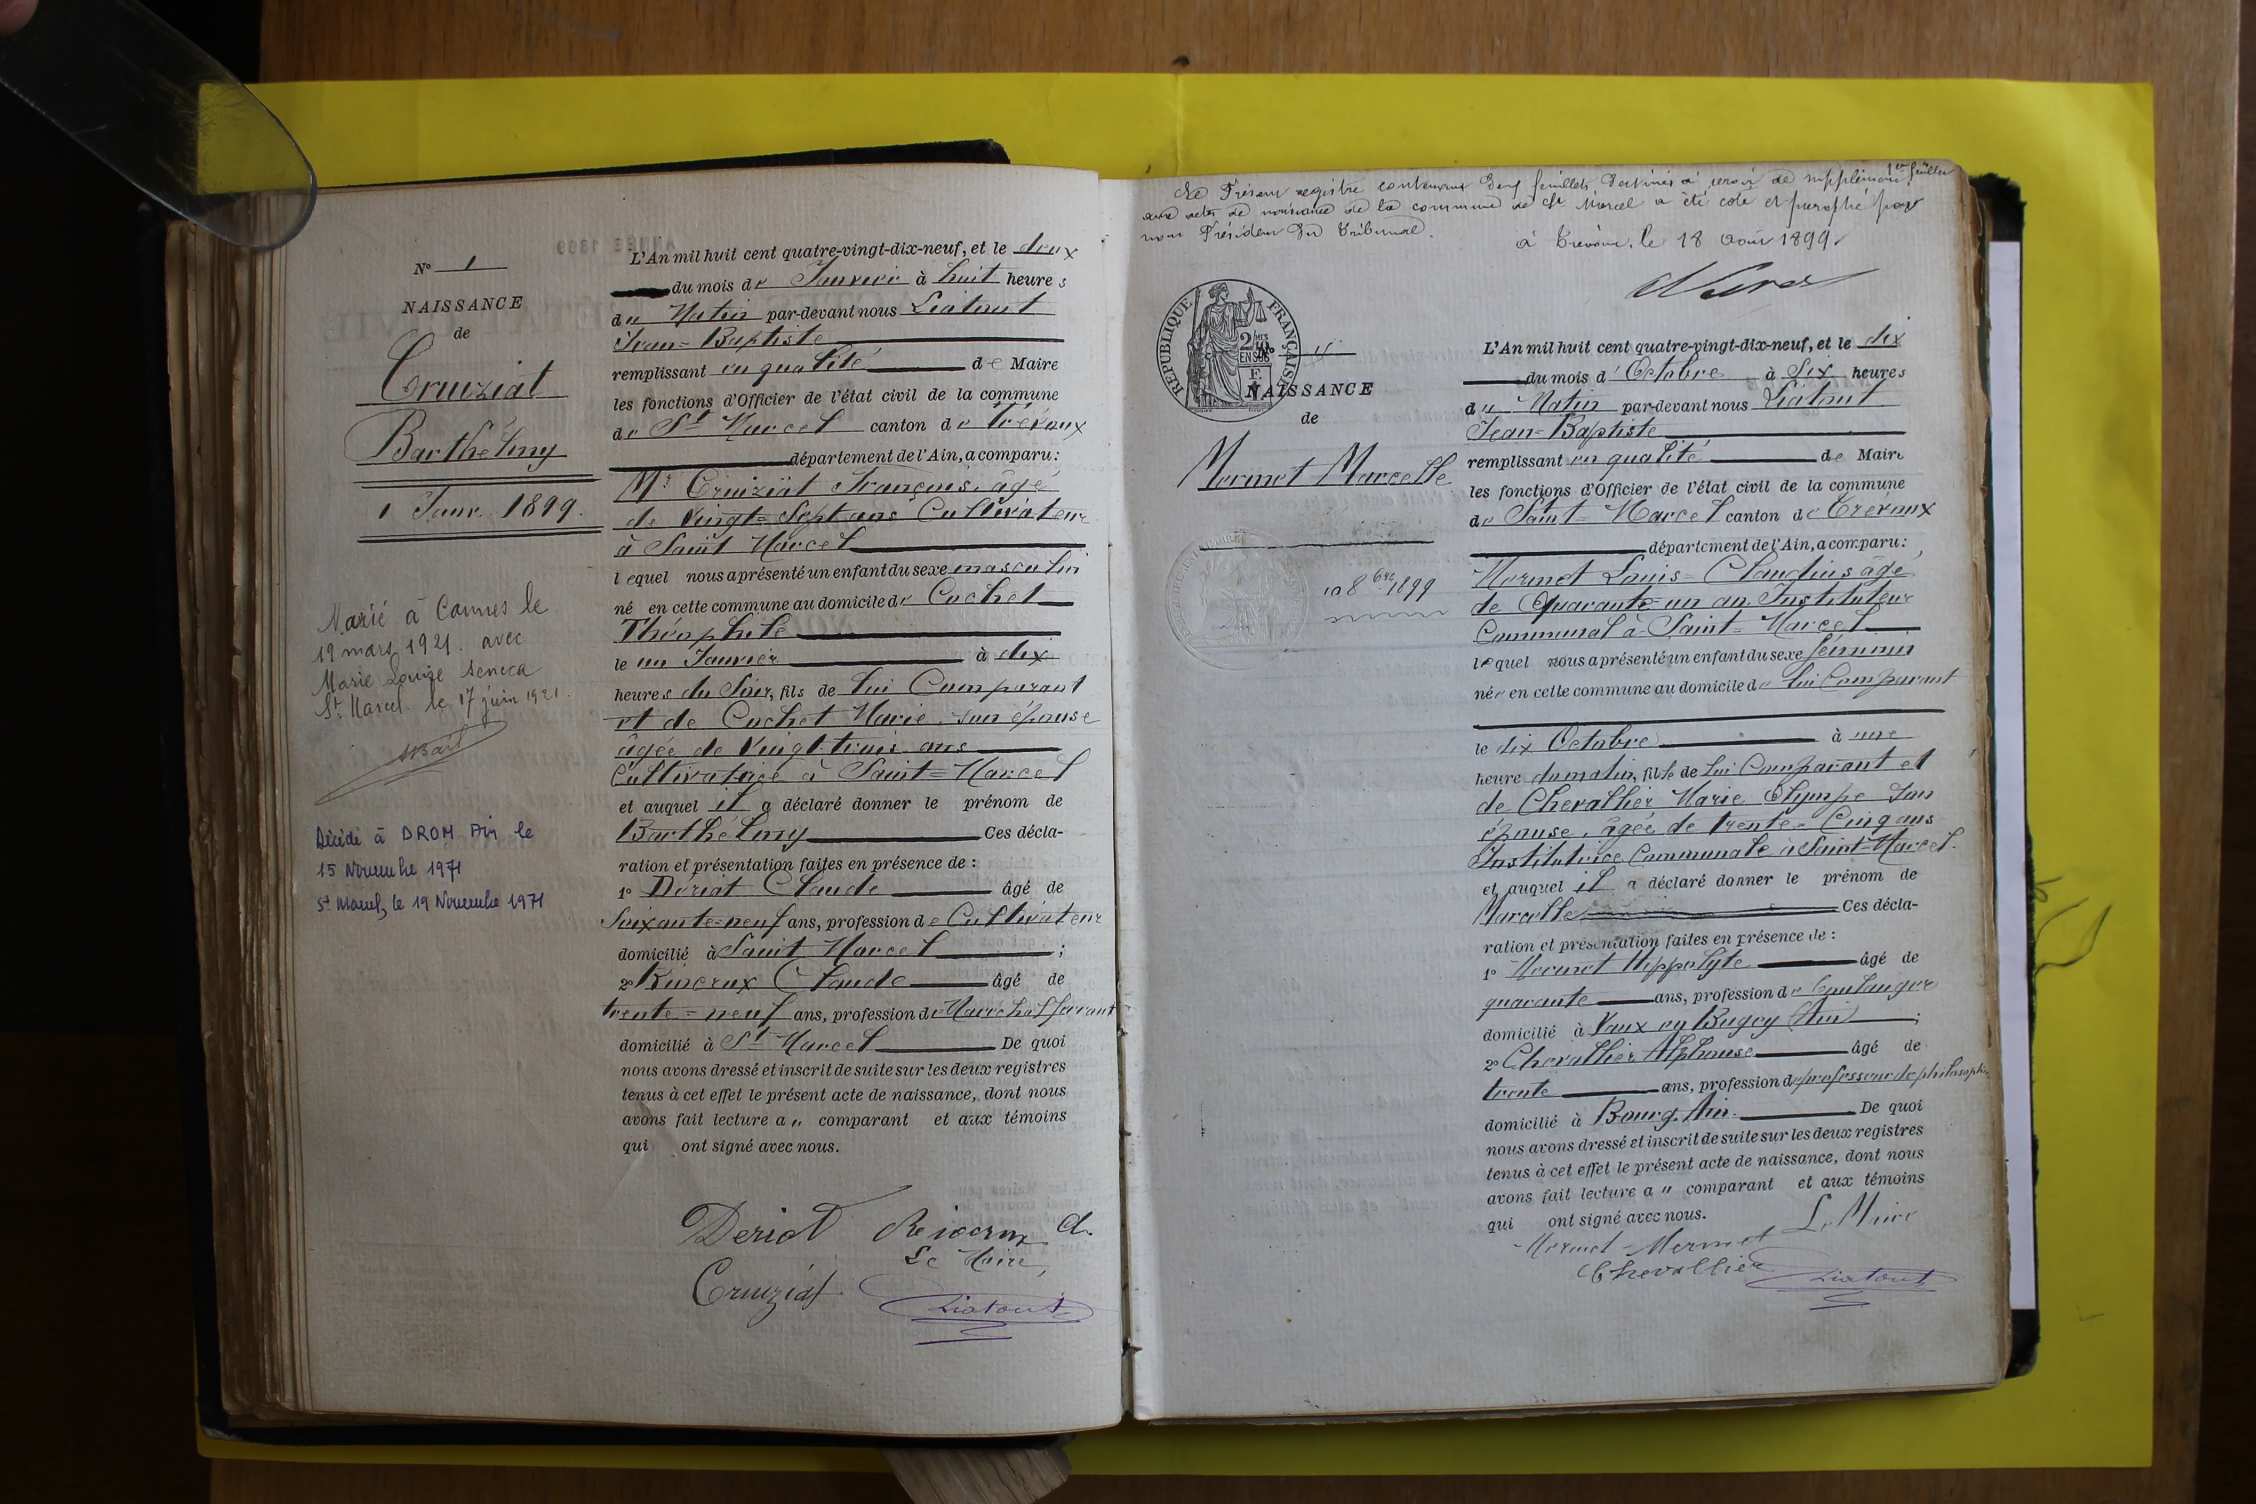 N° 1
NAISSANCE
de
Cruiziat
Barthélmy
1 Janv. 1899.
Marié à Cannes le
19 mars 1921. avec
Marie Louise Seneca
St. Marcel. le 17 juin 1921.
Décédé à DROM Ain le
15 Novembre 1971
St Marcel, le 19 Novembre 1971
L'An mil huit cent quatre-vingt-dix-neuf, et le deux
du mois de Janvier à huit heures
du Matin par-devant nous Liatout
Jean=Baptiste
remplissant en qualité de Maire
les fonctions d'Officier de l'état civil de la commune
de St Marcel canton de Trévoux
département de l'Ain, a comparu:
Mr Cruiziat François, âgé
de Vingt=Sept ans Cultivateur
à Saint Marcel
lequel nous a présenté un enfant du sexe masculin
né en cette commune au domicile de Cochet
Théophile
le un Janvier à dix
heures du Soir, fils de lui Comparant
et de Cochet Marie, son épouse
âgée de Vingt-trois ans
Cultivatrice à Saint=Marcel
et auquel il a déclaré donner le prénom de
Barthélmy Ces décla-
ration et présentation faites en présence de:
1° Dériat Claude âgé de
Soixante=neuf ans, profession de Cultivateur
domicilié à Saint Marcel ;
2° Rivoux Claude âgé de
trente=neuf ans, profession de Maréchal ferrant
domicilié à St Marcel De quoi
nous avons dressé et inscrit de suite sur les deux registres
tenus à cet effet le présent acte de naissance, dont nous
avons fait lecture au comparant et aux témoins
qui ont signé avec nous.
Deriat Cl.
Le Maire,
Cruiziat Liatout
1er feuillet
Le Présent registre contenant deux feuillets, destinés à servir de supplément
aux actes de naissance de la commune de St Marcel a été coté et paraphé par
nous Président du Tribunal.
à Trévoux, le 18 Août 1899.
RÉPUBLIQUE FRANÇAISE
N° 4
NAISSANCE
de
Mermet Marcelle
10 8bre 1899
L'An mil huit cent quatre-vingt-dix-neuf, et le dix
du mois d'Octobre à Six heures
du Matin par-devant nous Liatout
Jean=Baptiste
remplissant en qualité de Maire
les fonctions d'Officier de l'état civil de la commune
de Saint=Marcel canton de Trévoux
département de l'Ain, a comparu:
Mermet Louis=Claudius âgé
de Quarante=un an, Instituteur
Communal à Saint=Marcel
lequel nous a présenté un enfant du sexe féminin
née en cette commune au domicile de lui Comparant
le dix Octobre à une
heure du matin, fille de lui Comparant et
de Chevallier Marie Olympe son
épouse, âgée de trente=Cinq ans
Institutrice Communale à Saint=Marcel.
et auquel il a déclaré donner le prénom de
Marcelle Ces décla-
ration et présentation faites en présence de:
1° Mermet Hippolyte âgé de
quarante ans, profession de boulanger
domicilié à Vaux en Bugey Ain ;
2° Chevallier Alphonse âgé de
trente ans, profession de professeur de philosophie
domicilié à Bourg, Ain. De quoi
nous avons dressé et inscrit de suite sur les deux registres
tenus à cet effet le présent acte de naissance, dont nous
avons fait lecture au comparant et aux témoins
qui ont signé avec nous.
Le Maire
Mermet Mermet
Chevallier Liatout